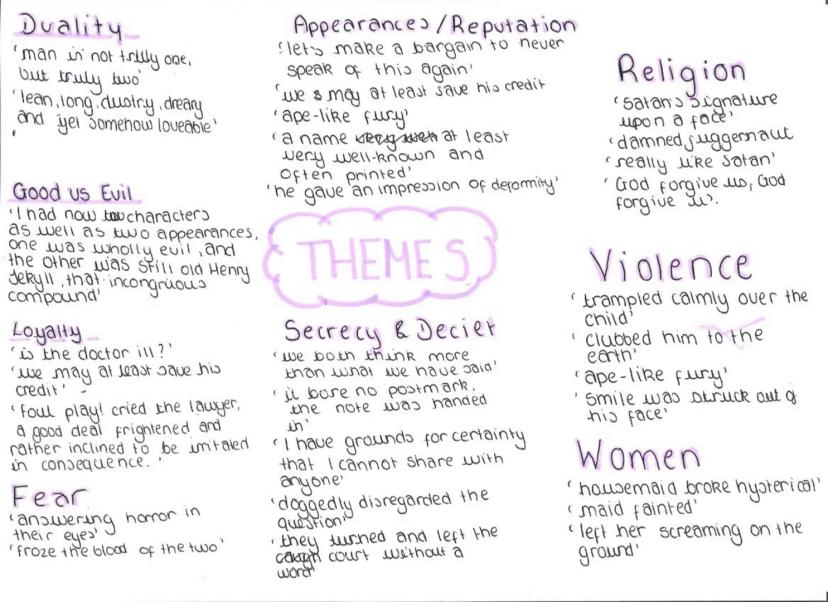 Duality
'man is not trully one,
but truly two'
'lean, long, dustry, dreary
and yet somehow loveable'
'
Good vs Evil
'I had now two characters
as well as two appearances,
one was wholly evil, and
the other was still old Henry
Jekyll, that incongruous
compound'
Loyalty
'is the doctor ill?'
'we may at least save his
credit'
'foul play! cried the lawyer,
a good deal frightened and
rather inclined to be irritated
in consequence.'
Fear
'answering horror in
their eyes'
'froze the blood of the two'
Appearances/Reputation
'let's make a bargain to never
speak of this again'
'we may at least save his credit
'ape-like fury'
'a name at least
very well-known and
often printed'
'he gave an impression of deformity'
THEMES
Secrecy & Deciet
'we both think more
than what we have said'
'it bore no postmark,
the note was handed
in'
'I have grounds for certainty
that I cannot share with
anyone'
'doggedly disregarded the
question'
'they turned and left the
court without a
word
Religion
'satan's signature
upon a face'
'damned juggernaut
'really like Satan'
'God forgive us, God
forgive us.
Violence
'trampled calmly over the
child'
'clubbed him to the
earth'
'ape-like fury'
'smile was struck out of
his face'
Women
'housemaid broke hysterical'
'maid fainted'
'left her screaming on the
ground'